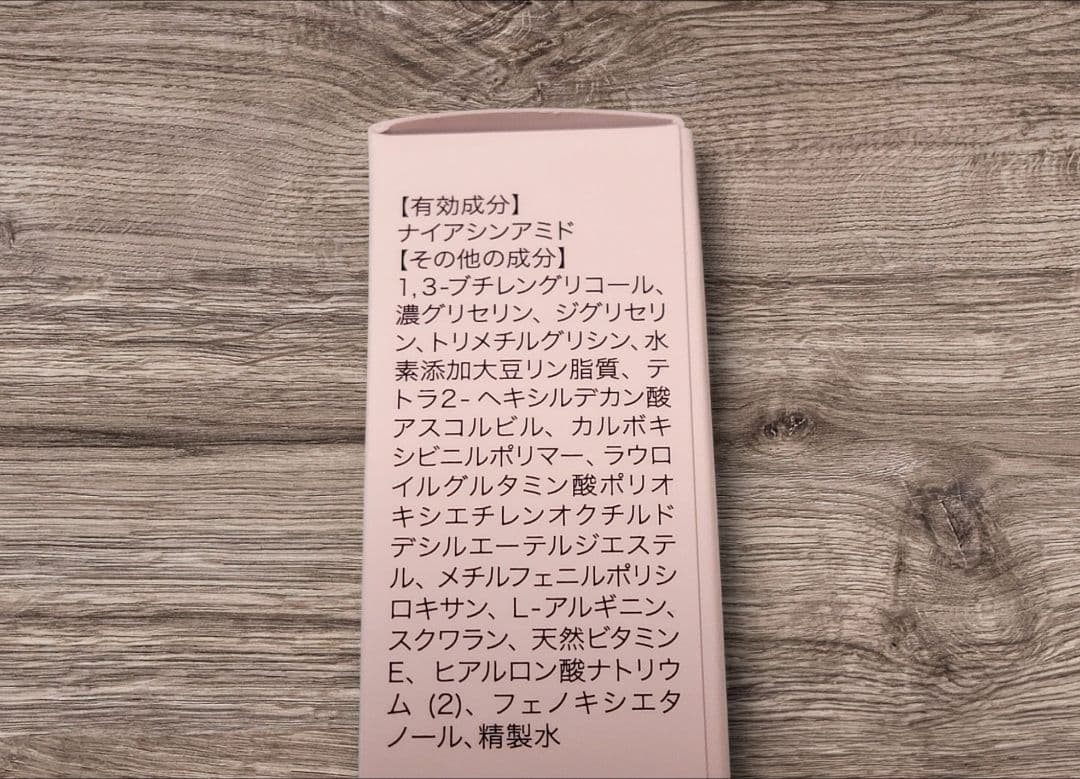 【有効成分】
ナイアシンアミド
【その他の成分】
1,3-ブチレングリコール、
濃グリセリン、ジグリセリ
ン、トリメチルグリシン、水
素添加大豆リン脂質、テ
トラ2-ヘキシルデカン酸
アスコルビル、カルボキ
シビニルポリマー、ラウロ
イルグルタミン酸ポリオ
キシエチレンオクチルド
デシルエーテルジエステ
ル、メチルフェニルポリシ
ロキサン、L-アルギニン、
スクワラン、天然ビタミン
E、ヒアルロン酸ナトリウ
ム(2)、フェノキシエタ
ノール、精製水